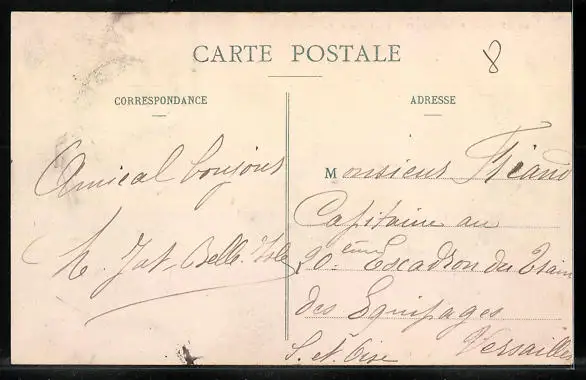 CARTE POSTALE
8
CORRESPONDANCE
ADRESSE
Amical bonjour
Monsieur
Capitaine au
20ème Escadron du Train
des Equipages
Versailles
S. et Oise